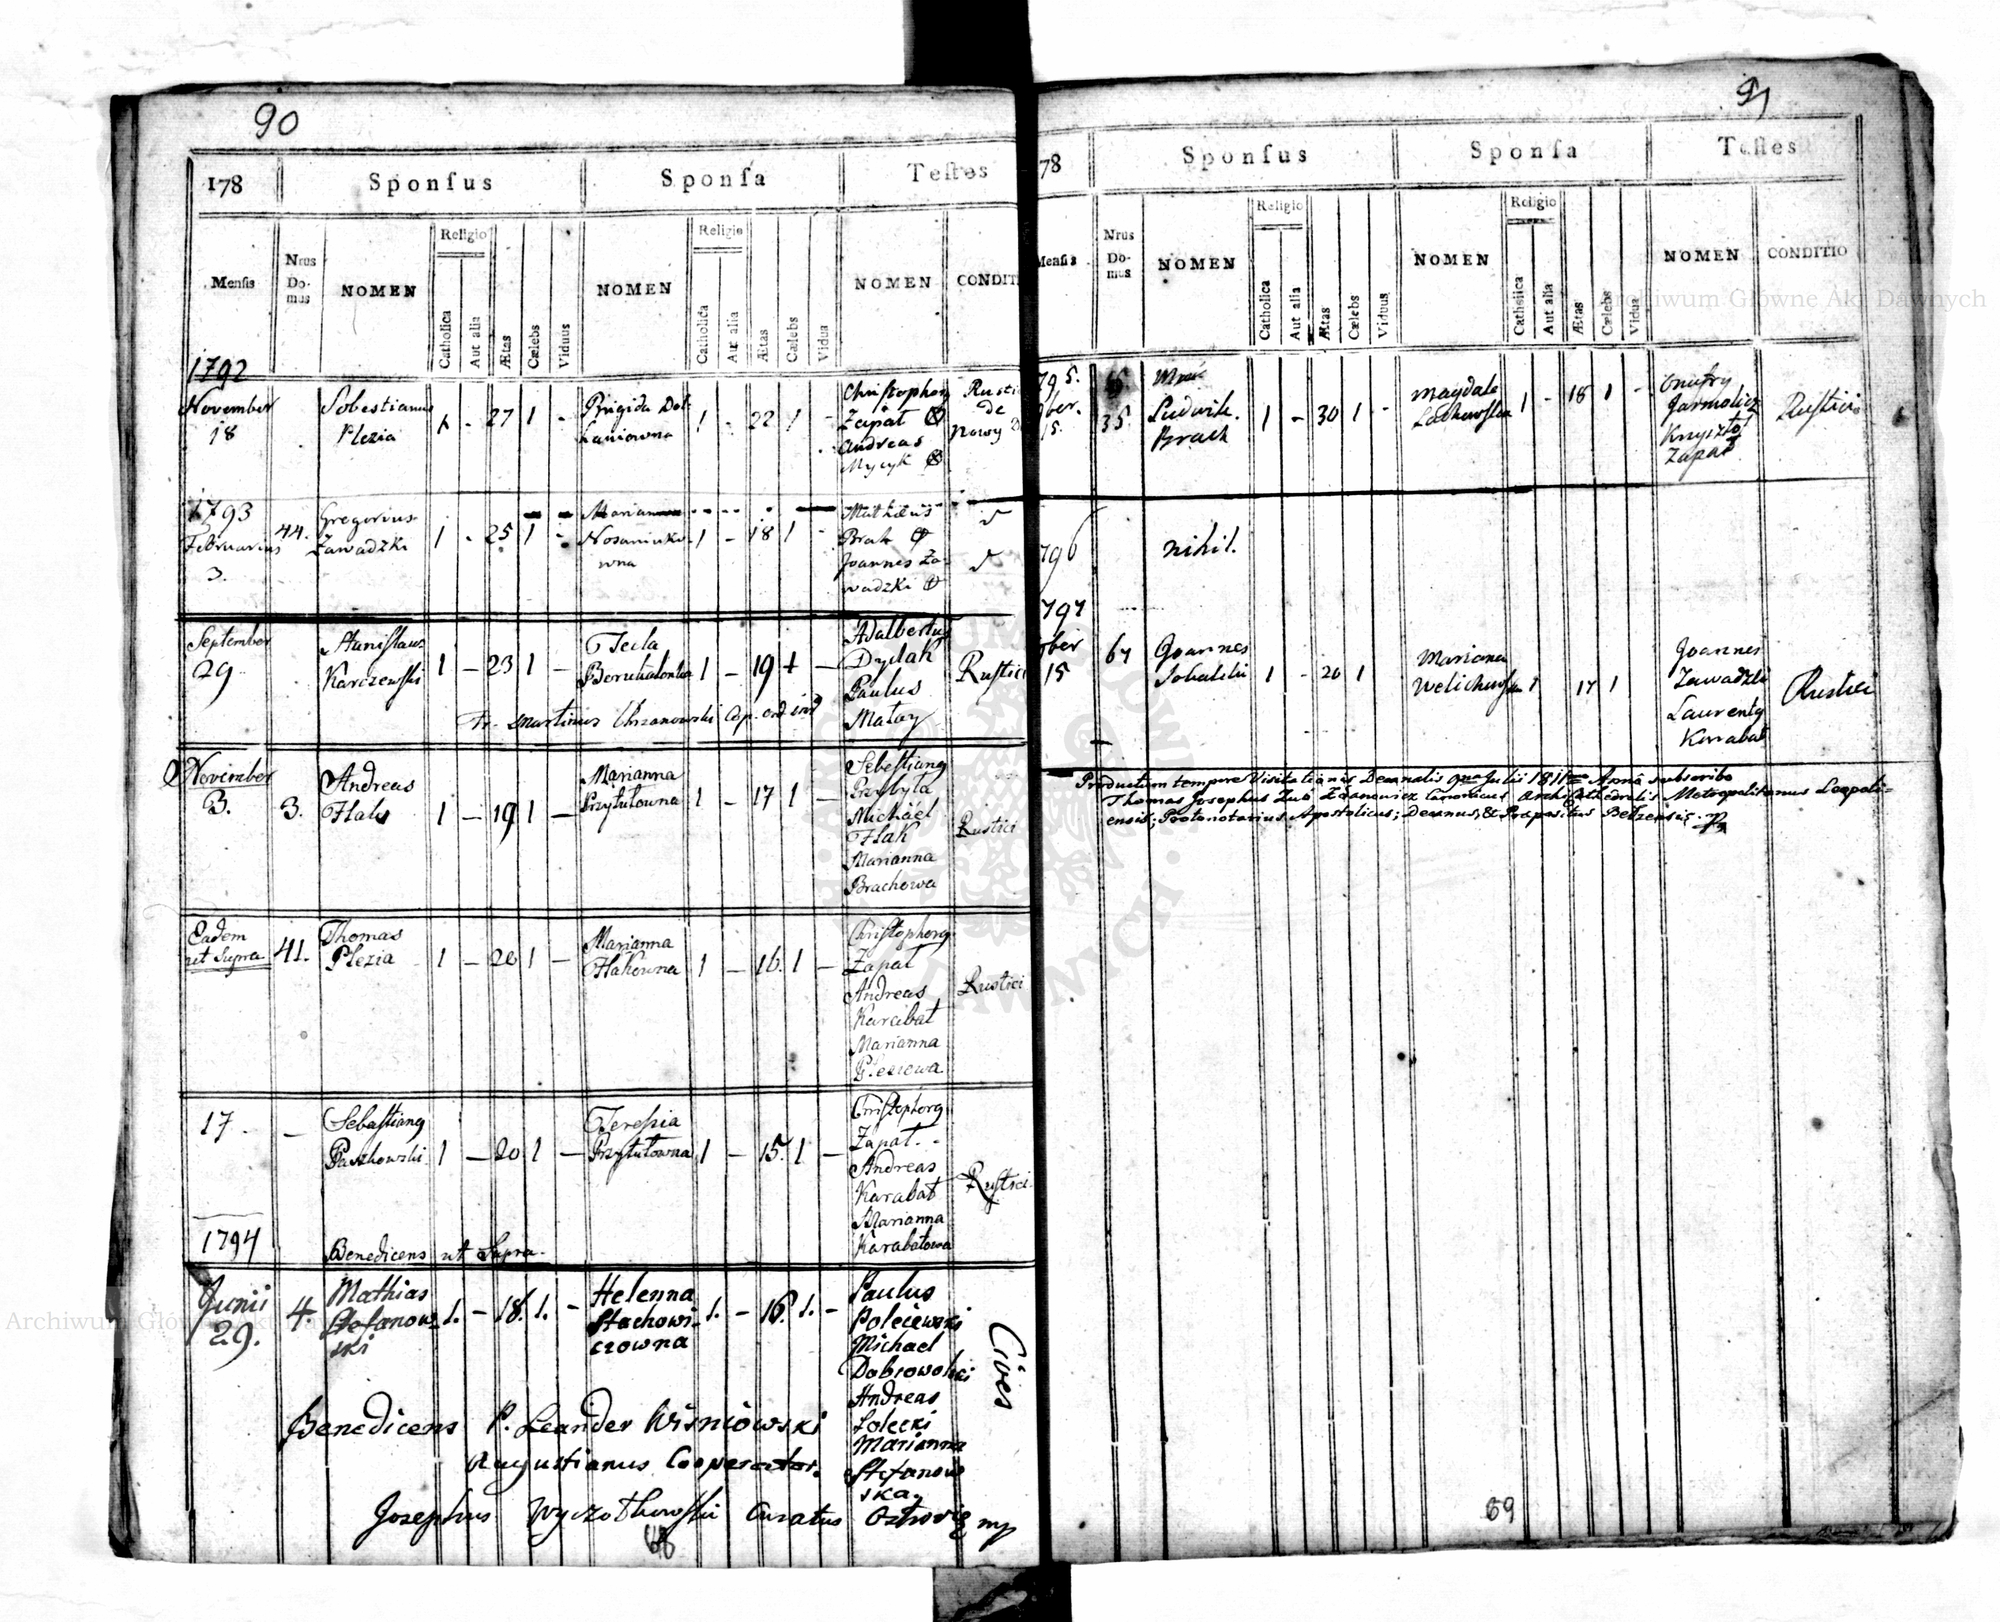 90
178
Sponſus
Sponſa
Teſtes
Menſis
Nrus Do- mus
NOMEN
Religio
Catholica
Aut alia
Ætas
Cælebs
Viduus
NOMEN
Religio
Catholica
Aut alia
Ætas
Cælebs
Vidua
NOMEN
CONDITI
1792
November
18
Sobestianus
Plezia
1 - 27 1 -
Brigida
22
Christophorg
Zapał
Andreas
Mycyk
Rustici
de
Nowy
1793
Februarius
3.
44.
Gregorius
Zawadzki
1 - 25 1 -
Marianna
Nosaniuko-
wna
1 - 18 1 -
Mathæus
Brak
Joannes Za-
wadzki
September
29
Stanislaus
Karczewſki
1 - 23 1 -
Tecla
1 - 19 1 -
Adalbertus
Dydak
Paulus
Matay
Rustici
Fr. Martinus Chrzanowski
November
3.
3.
Andreas
Hals
1 - 19 1 -
Marianna
Przytułowna
1 - 17 1 -
Sebeſtiang
Przybyta
Michael
Hlak
Marianna
Brachowa
Rustici
Eadem
ut Supra
41.
Thomas
Plezia
1 - 20 1 -
Marianna
Hlakowna
1 - 16. 1 -
Chriſtophorg
Zapał
Andreas
Karabat
Marianna
Pleziowa
Rustici
17.
-
Sebaſtiang
Paszkowski
1 - 20 1 -
Tereſia
Przytułowna
1 - 15. 1 -
Criſtophorg
Zapał.
Andreas
Karabat
Marianna
Karabatowa
Rustici
1794
Benedicens ut Supra.
Junii
29.
4.
Mathias
Stefanow-
ski
1. - 18. 1. -
Helenna
Stachowi-
czowna
1. - 16. 1. -
Paulus
Polciewski
Michael
Dobrowolski
Andreas
Solecki
Marianna
Stefanow
ska
Cives
Benedicens P. Leander Wisniowski
Augustianus Cooperator.
Josephus Wyczołkowſki Curatus Ostrovię mp
68
91
78
Sponſus
Sponſa
Teſtes
Menſis
Nrus Do- mus
NOMEN
Religio
Catholica
Aut alia
Ætas
Cælebs
Viduus
NOMEN
Religio
Catholica
Aut alia
Ætas
Cælebs
Vidua
NOMEN
CONDITIO
795.
ber.
15.
35.
Ludwik.
Brach
1 - 30 1 -
Magdale
Lachowska
1 - 18 1 -
Onufry
Jarmolicz
Krzysztof
Zapał
Rustici
796
nihil.
797
ober
15
67
Joannes
Sobalski
1 - 20 1
Mariana
Welichowska
1 17 1
Joannes
Zawadzki
Laurenty
Karabat
Rustici
Productum tempore Visitationis Decanalis Julii 1811 Anno subscribo
Thomas Josephus Zub Zdanowicz Canonicus Archi Cathedralis Metropolitanus Leopoli-
ensis; Protonotarius Apostolicus; Decanus, & Præpositus Belzensis.
69
Archiwum Główne Akt Dawnych
Archiwum Główne Akt Dawnych